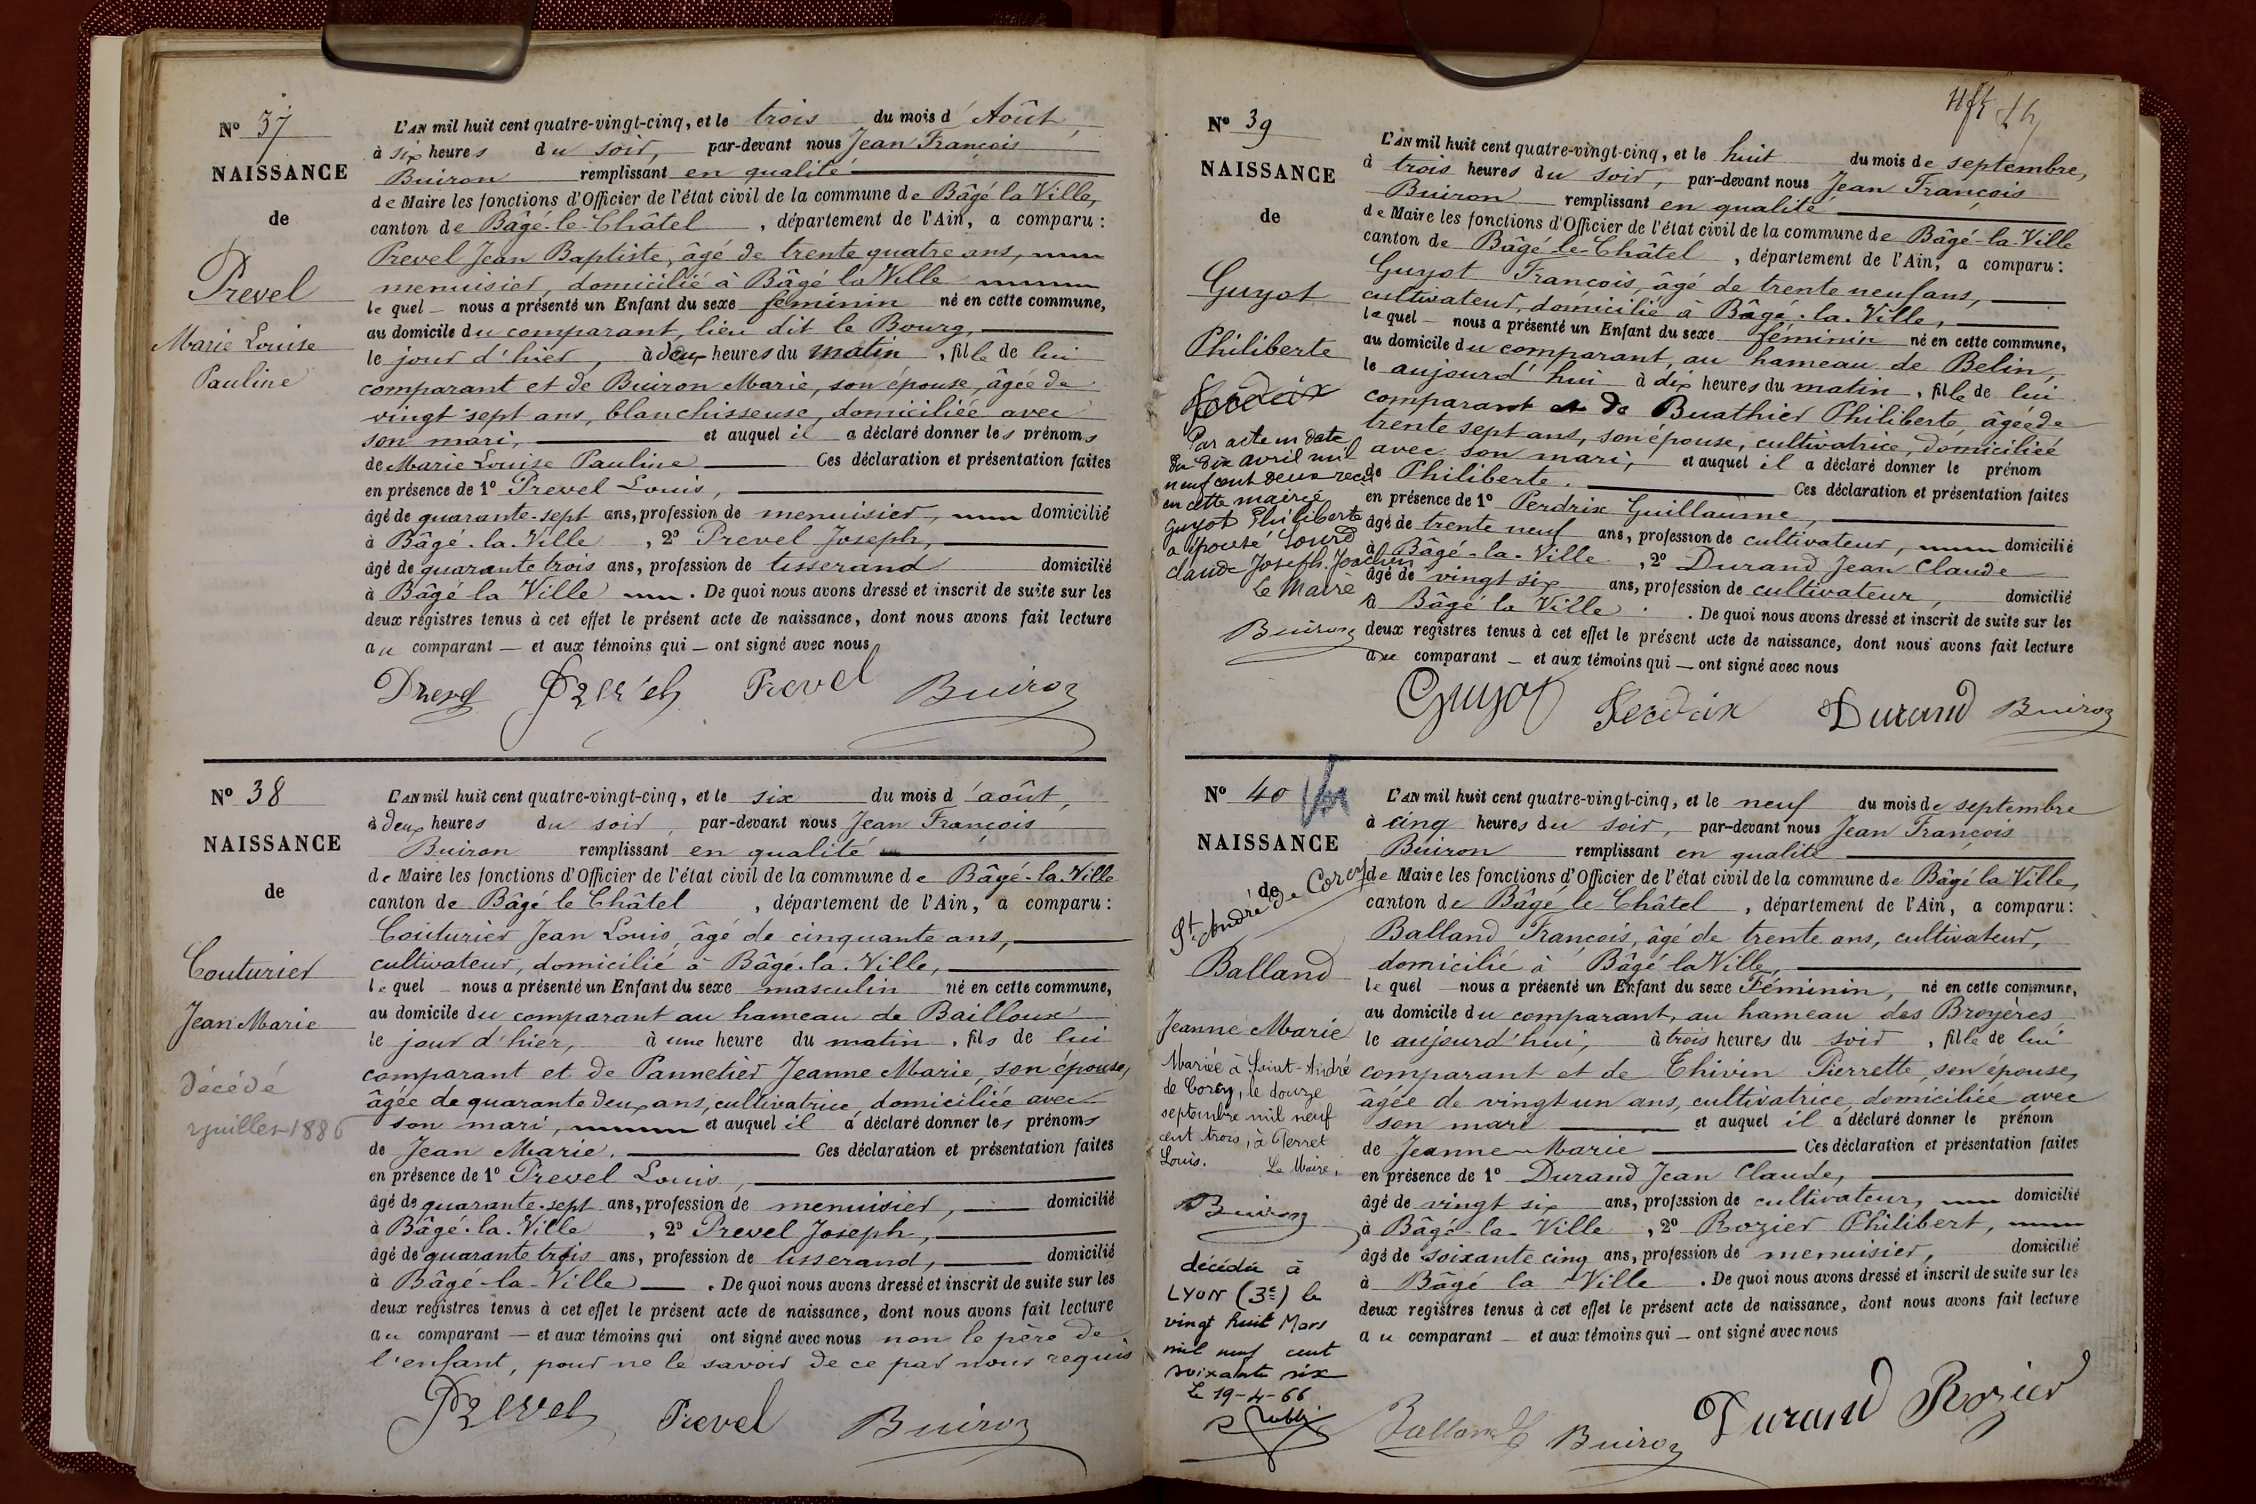 Nº 37
NAISSANCE
de
Prevel
Marie Louise
Pauline
L'AN mil huit cent quatre-vingt-cinq, et le trois du mois d'Août,
à six heures du soir, par-devant nous Jean François
Buiron remplissant en qualité
de Maire les fonctions d'Officier de l'état civil de la commune de Bâgé la Ville,
canton de Bâgé-le-Châtel, département de l'Ain, a comparu :
Prevel Jean Baptiste, âgé de trente quatre ans,
menuisier, domicilié à Bâgé la Ville
le quel nous a présenté un Enfant du sexe féminin né en cette commune,
au domicile du comparant, lieu dit le Bourg,
le jour d'hier, à deux heures du matin, fille de lui
comparant et de Buiron Marie, son épouse, âgée de
vingt sept ans, blanchisseuse, domiciliée avec
son mari, et auquel il a déclaré donner les prénoms
de Marie Louise Pauline Ces déclaration et présentation faites
en présence de 1º Prevel Louis,
âgé de quarante-sept ans, profession de menuisier, domicilié
à Bâgé-la-Ville, 2º Prevel Joseph,
âgé de quarante trois ans, profession de tisserand domicilié
à Bâgé la Ville. De quoi nous avons dressé et inscrit de suite sur les
deux registres tenus à cet effet le présent acte de naissance, dont nous avons fait lecture
au comparant — et aux témoins qui — ont signé avec nous
Prevel Prevel Prevel Buiron
Nº 38
NAISSANCE
de
Couturier
Jean Marie
Décédé
juillet 1886
L'AN mil huit cent quatre-vingt-cinq, et le six du mois d'août,
à deux heures du soir, par-devant nous Jean François
Buiron remplissant en qualité
de Maire les fonctions d'Officier de l'état civil de la commune de Bâgé-la-Ville
canton de Bâgé le Châtel, département de l'Ain, a comparu :
Couturier Jean Louis, âgé de cinquante ans,
cultivateur, domicilié à Bâgé-la-Ville,
le quel nous a présenté un Enfant du sexe masculin né en cette commune,
au domicile du comparant au hameau de Bailloux
le jour d'hier, à une heure du matin, fils de lui
comparant et de Pannetier Jeanne Marie, son épouse,
âgée de quarante deux ans, cultivatrice, domiciliée avec
son mari, et auquel il a déclaré donner les prénoms
de Jean Marie. Ces déclaration et présentation faites
en présence de 1º Prevel Louis,
âgé de quarante-sept ans, profession de menuisier, domicilié
à Bâgé-la-Ville, 2º Prevel Joseph,
âgé de quarante trois ans, profession de tisserand, domicilié
à Bâgé-la-Ville. De quoi nous avons dressé et inscrit de suite sur les
deux registres tenus à cet effet le présent acte de naissance, dont nous avons fait lecture
au comparant — et aux témoins qui ont signé avec nous non le père de
l'enfant, pour ne le savoir de ce par nous requis
Prevel Prevel Buiron
Nº 39
NAISSANCE
de
Guyot
Philiberte
Perdrix
Par acte en date
du dix avril mil
neuf cent deux reçu
en cette mairie
Guyot Philiberte
a épousé Sourd
Claude Joseph Joachim
Le Maire
Buiron
L'AN mil huit cent quatre-vingt-cinq, et le huit du mois de septembre,
à trois heures du soir, par-devant nous Jean François
Buiron remplissant en qualité
de Maire les fonctions d'Officier de l'état civil de la commune de Bâgé-la-Ville
canton de Bâgé-le-Châtel, département de l'Ain, a comparu :
Guyot François, âgé de trente neuf ans,
cultivateur, domicilié à Bâgé-la-Ville,
le quel nous a présenté un Enfant du sexe féminin né en cette commune,
au domicile du comparant, au hameau de Belin,
le aujourd'hui à dix heures du matin, fille de lui
comparant et de Buathier Philiberte, âgée de
trente sept ans, son épouse, cultivatrice, domiciliée
avec son mari, et auquel il a déclaré donner le prénom
de Philiberte. Ces déclaration et présentation faites
en présence de 1º Perdrix Guillaume,
âgé de trente neuf ans, profession de cultivateur, domicilié
à Bâgé-la-Ville, 2º Durand Jean Claude
âgé de vingt six ans, profession de cultivateur, domicilié
à Bâgé la Ville. De quoi nous avons dressé et inscrit de suite sur les
deux registres tenus à cet effet le présent acte de naissance, dont nous avons fait lecture
au comparant — et aux témoins qui — ont signé avec nous
Guyot Perdrix Durand Buiron
Nº 40
NAISSANCE
de
St André de Corcy
Balland
Jeanne Marie
Mariée à Saint-André
de Corcy, le douze
septembre mil neuf
cent trois, à Perret
Louis. Le Maire,
Buiron
décédée à
LYON (3e) le
vingt huit Mars
mil neuf cent
soixante six
Le 19-4-66
L'AN mil huit cent quatre-vingt-cinq, et le neuf du mois de septembre
à cinq heures du soir, par-devant nous Jean François
Buiron remplissant en qualité
de Maire les fonctions d'Officier de l'état civil de la commune de Bâgé la Ville,
canton de Bâgé le Châtel, département de l'Ain, a comparu :
Balland François, âgé de trente ans, cultivateur,
domicilié à Bâgé la Ville,
le quel nous a présenté un Enfant du sexe Féminin, né en cette commune,
au domicile du comparant, au hameau des Broyères
le aujourd'hui, à trois heures du soir, fille de lui
comparant et de Thivin Pierrette, son épouse,
âgée de vingt un ans, cultivatrice, domiciliée avec
son mari et auquel il a déclaré donner le prénom
de Jeanne-Marie Ces déclaration et présentation faites
en présence de 1º Durand Jean Claude,
âgé de vingt six ans, profession de cultivateur, domicilié
à Bâgé-la-Ville, 2º Rozier Philibert,
âgé de soixante cinq ans, profession de menuisier, domicilié
à Bâgé la Ville. De quoi nous avons dressé et inscrit de suite sur les
deux registres tenus à cet effet le présent acte de naissance, dont nous avons fait lecture
au comparant — et aux témoins qui — ont signé avec nous
Balland Buiron Durand Rozier